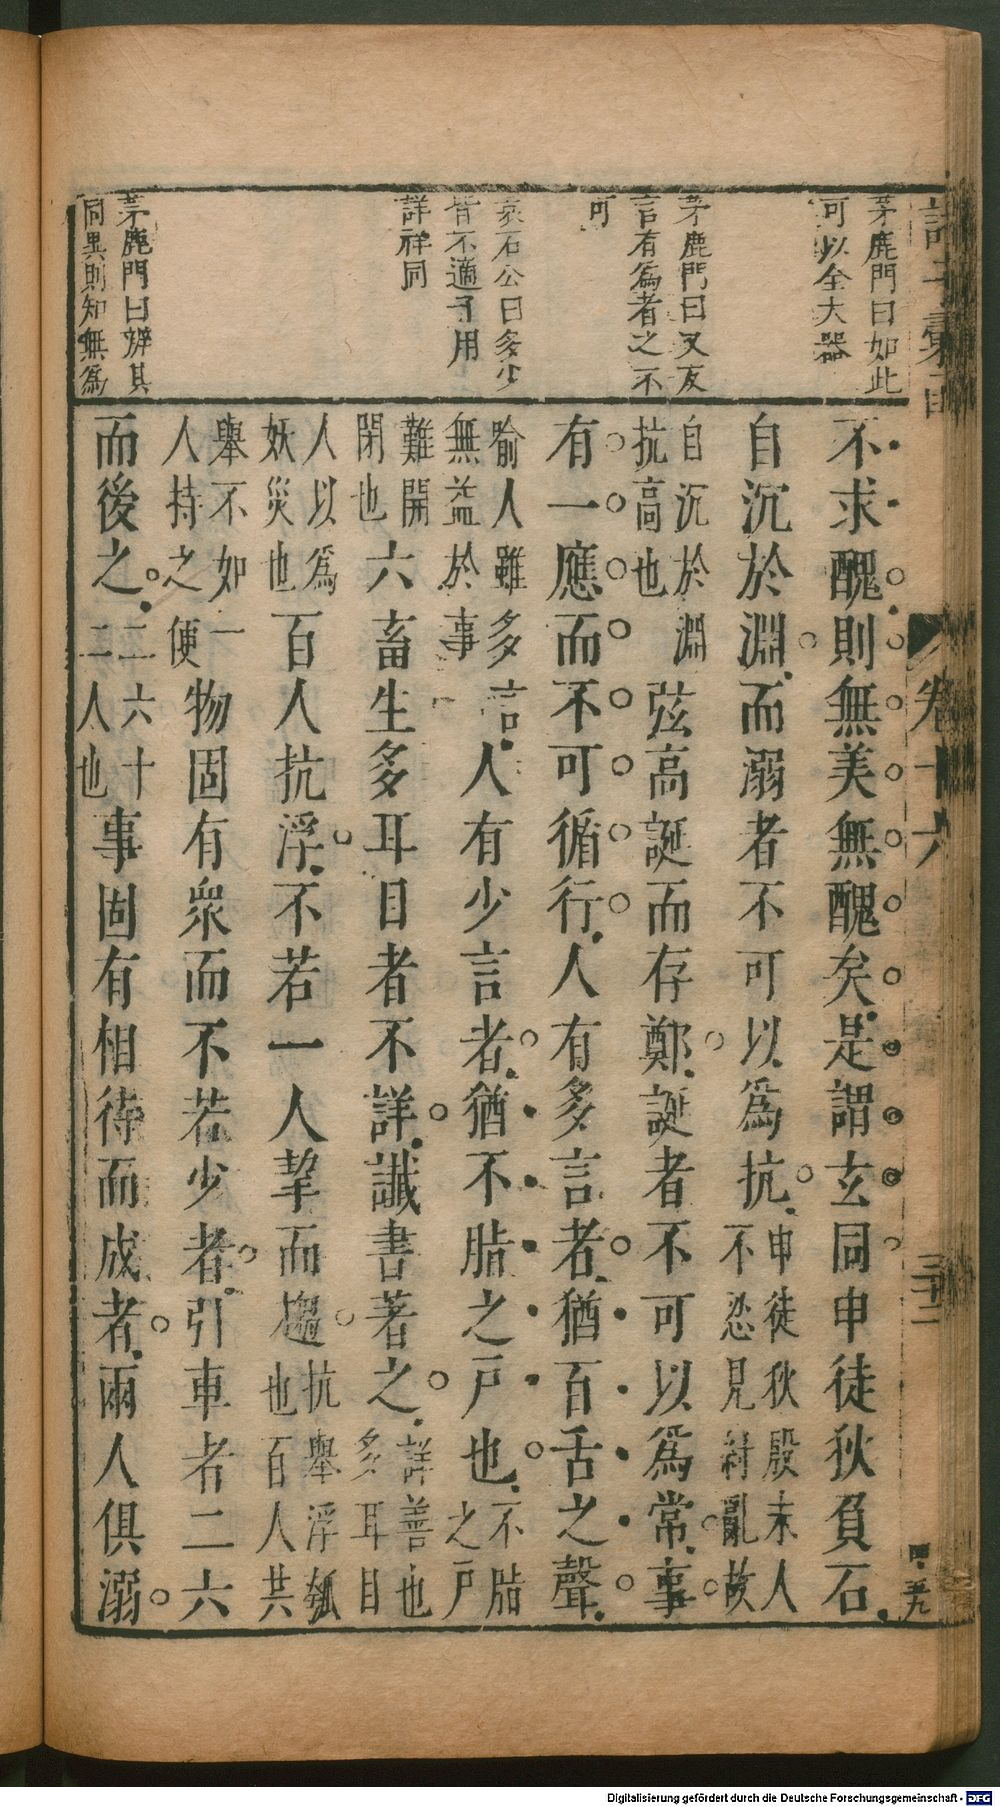 茅鹿門曰如此
可以全大器
茅鹿門曰又友
言有為者之不
可
袁石公曰多少
皆不適于用
詳祥同
茅鹿門曰辨其
同異則知無為
不求醜則無美無醜矣是謂玄同申徒狄負石
自沉於淵而溺者不可以為抗申徒狄殷末人不忍見紂亂故
自沉於淵抗高也弦高誕而存鄭誕者不可以為常事
有一應而不可循行人有多言者猶百舌之聲
喻人雖多言無益於事人有少言者猶不脂之戶也不脂之戶
難開閉也六畜生多耳目者不詳讖書著之詳善也多耳目
人以為妖災也百人抗浮不若一人挈而趨抗舉浮瓠也百人共
舉不如一人持之便物固有衆而不若少者引車者二六
而後之二六十二人也事固有相待而成者兩人俱溺
卷十六
三十二
Digitalisierung gefördert durch die Deutsche Forschungsgemeinschaft - DFG